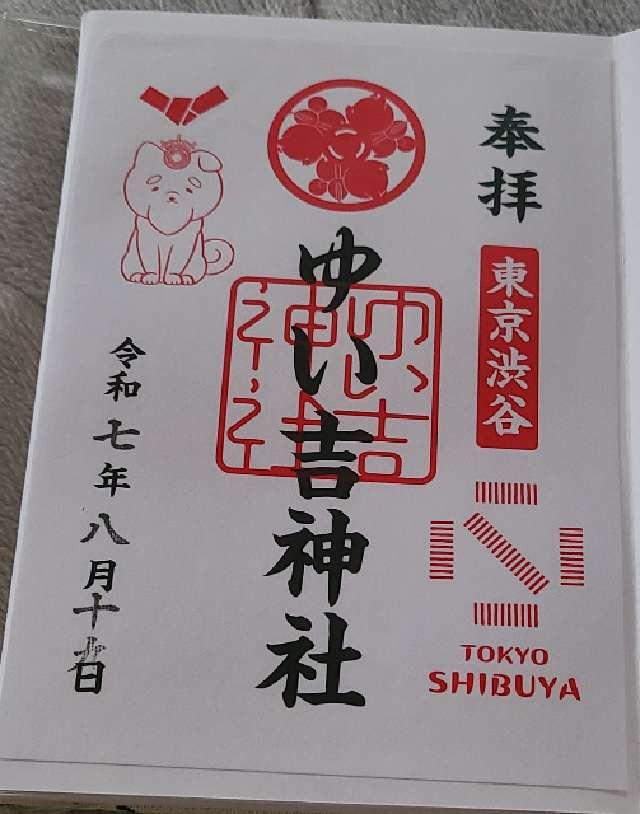 奉拝
東京渋谷
TOKYO
SHIBUYA
ゆい吉神社
ゆい吉
神社
令和七年八月十日